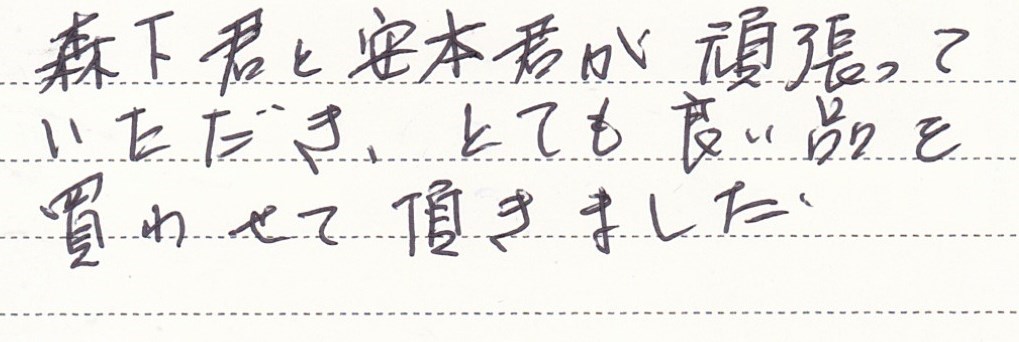 森下君と安本君が頑張って
いただき、とても良い品を
買わせて頂きました